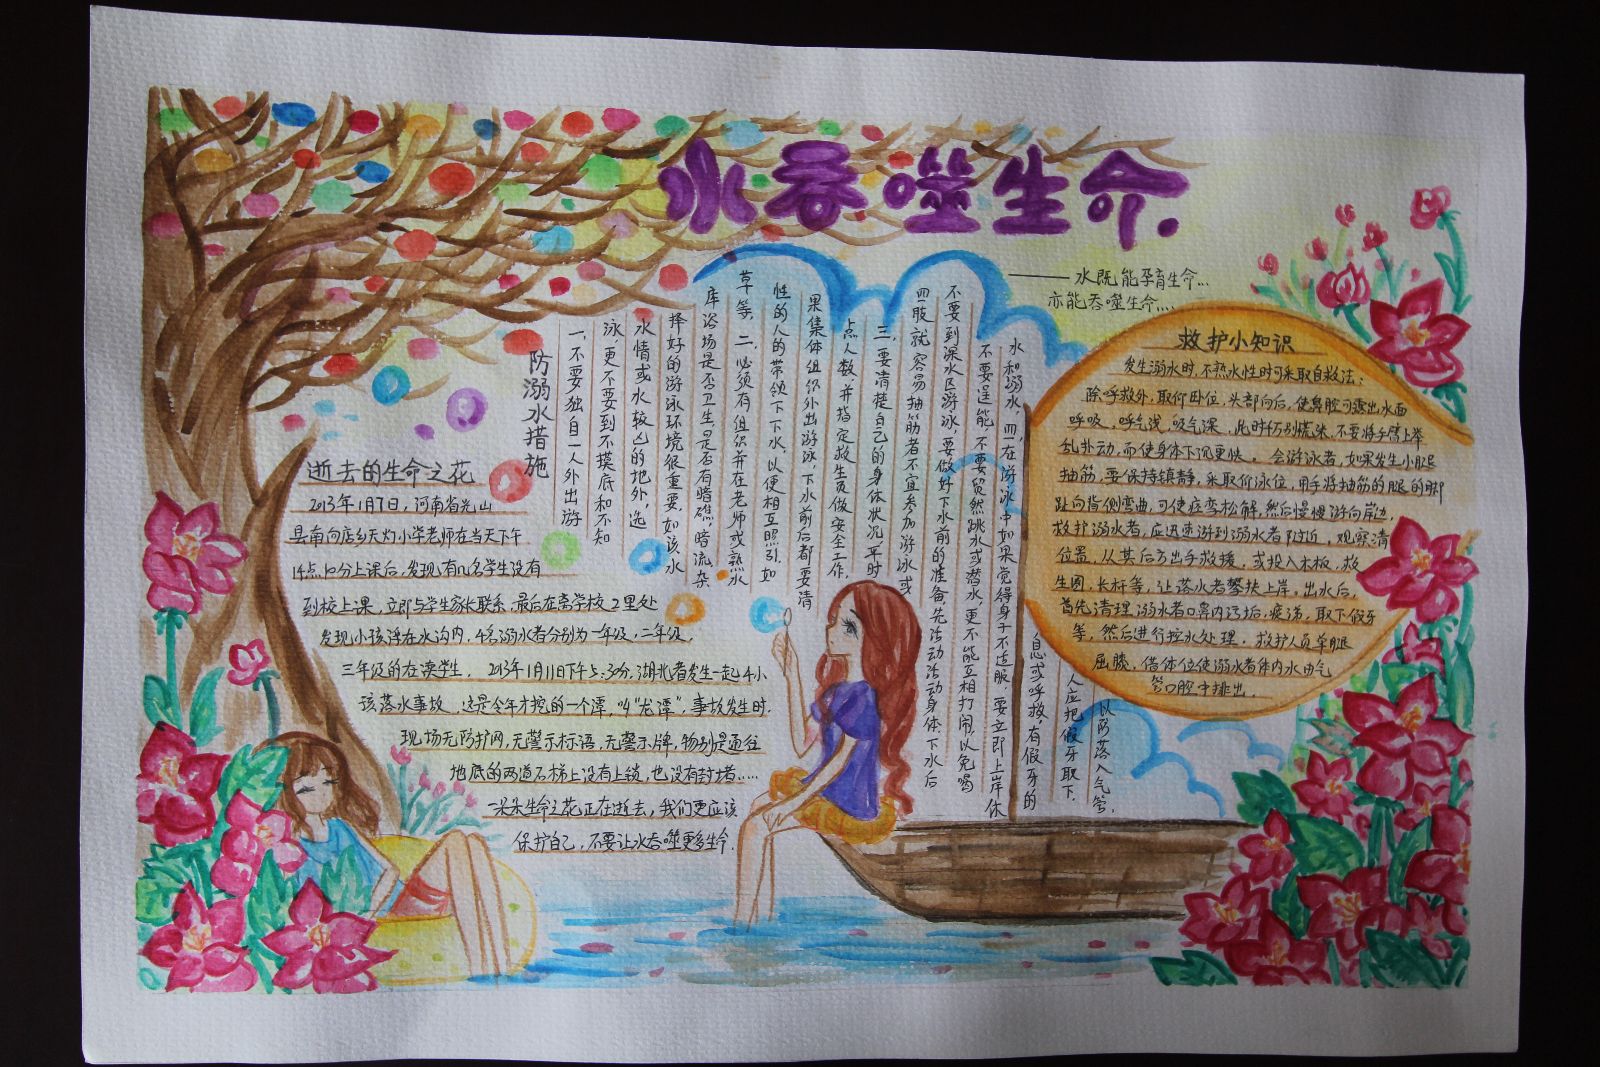 水吞噬生命.
——水既能孕育生命...
亦能吞噬生命...
逝去的生命之花
2013年1月7日,河南省光山
县南向店乡天灯小学老师在当天下午
14点10分上课后,发现有几名学生没有
到校上课,立即与学生家长联系,最后在离学校2里处
发现小孩浮在水沟内,4名溺水者分别为一年级,二年级,
三年级的在读学生. 2013年1月11日下午5:30分,湖北省发生一起4小
孩落水事故,这是今年才挖的一个潭,叫“龙潭”,事故发生时,
现场无防护网,无警示标语,无警示牌,特别是通往
地底的两道石梯上没有上锁,也没有封堵……
一朵朵生命之花正在逝去,我们更应该
保护自己,不要让水吞噬更多生命.
防溺水措施
一、不要独自一人外出游
泳,更不要到不摸底和不知
水情或水较凶的地外,选
择好的游泳环境很重要,如该水
库浴场是否卫生,是否有暗礁,暗流杂
草等. 二、必须有组织并在老师或熟水
性的人的带领下下水,以便相互照引,如
果集体组织外出游泳,下水前后都要清
点人数,并指定救生员做安全工作.
三、要清楚自己的身体状况,平时
四肢就容易抽筋者不宜参加游泳或
不要到深水区游泳,要做好下水前的准备,先活动活动身体,下水后
不要逞能,不要贸然跳水或潜水,更不能互相打闹,以免喝
水和溺水,四、在游泳中如果觉得身子不适服,要立即上岸休
息或呼救,有假牙的
人应把假牙取下,
以防落入气管.
救护小知识
发生溺水时,不熟水性时可采取自救法:
除呼救外,取仰卧位,头部向后,使鼻腔可露出水面
呼吸,呼气浅,吸气深,此时千万别慌张,不要将手臂上举
乱扑动,而使身体下沉更快. 会游泳者,如果发生小腿
抽筋,要保持镇静,采取仰泳位,用手将抽筋的腿的脚
趾向背侧弯曲,可使痉挛松解,然后慢慢游向岸边,
救护溺水者,应迅速游到溺水者附近,观察清
位置,从其后方出手救援,或投入木板,救
生圈,长杆等,让落水者攀扶上岸,出水后,
首先清理溺水者口鼻内污垢,痰涕,取下假牙
等,然后进行控水处理,救护人员单腿
屈膝,借体位使溺水者体内水由气
管口腔中排出.